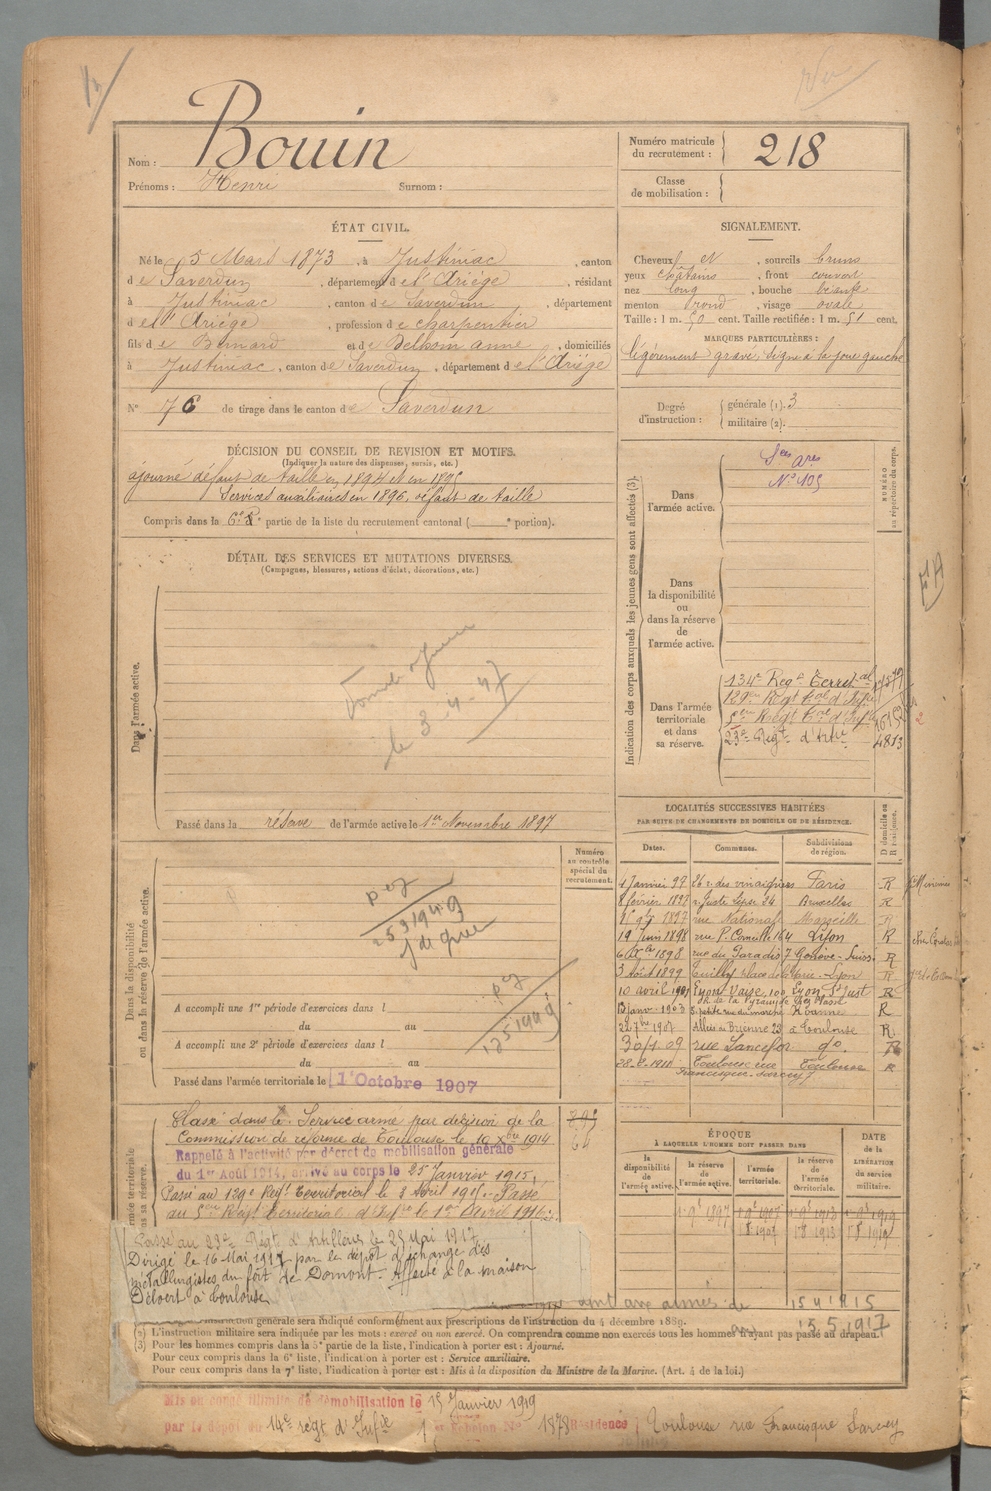 Bouin
Nom :
Prénoms : Henri Surnom :
Numéro matricule du recrutement : 218
Classe de mobilisation :
ÉTAT CIVIL.
Né le 5 Mars 1873, à Justiniac, canton
de Saverdun, département de l'Ariége, résidant
à Justiniac, canton de Saverdun, département
de l'Ariége, profession de charpentier
fils de Bernard et de Belhom anne, domiciliés
à Justiniac, canton de Saverdun, département de l'Ariége
N° 76 de tirage dans le canton de Saverdun
SIGNALEMENT.
Cheveux et , sourcils bruns
yeux châtains , front couvert
nez long , bouche béante
menton rond , visage ovale
Taille : 1 m. 50 cent. Taille rectifiée : 1 m. 51 cent.
MARQUES PARTICULIÈRES :
légèrement gravé, signe à la joue gauche
Degré d'instruction : générale (1). 3
militaire (2).
DÉCISION DU CONSEIL DE REVISION ET MOTIFS.
(Indiquer la nature des dispenses, sursis, etc.)
ajourné défaut de taille en 1894 et en 1895
Services auxiliaires en 1896, défaut de taille
Compris dans la 6e partie de la liste du recrutement cantonal ( e portion).
DÉTAIL DES SERVICES ET MUTATIONS DIVERSES.
(Campagnes, blessures, actions d'éclat, décorations, etc.)
Dans l'armée active.
le 3-4-47
Passé dans la réserve de l'armée active le 1er Novembre 1897
Indication des corps auxquels les jeunes gens sont affectés (3).
NUMÉRO au répertoire du corps.
Dans l'armée active.
N° 105
Dans la disponibilité ou dans la réserve de l'armée active.
Dans l'armée territoriale et dans sa réserve.
134e Regt Territal
129e Regt tal d'Infie
5e Regt tal d'Infie
23e Regt d'Artie 4813
LOCALITÉS SUCCESSIVES HABITÉES
PAR SUITE DE CHANGEMENTS DE DOMICILE OU DE RÉSIDENCE.
Dates. Communes. Subdivisions de région. D domicile ou R résidence.
1 Janvier 97 26 r. des vinaigriers Paris R
8 février 1897 r. Juste Lipse 34 Bruxelles R
rue National Marseille R
19 Juin 1898 rue P. Corneille 164 Lyon R
rue du Paradis 7 Genève-Suisse R
3 Août 1899 Lyon R
10 avril 1901 Lyon-Vaise, 100 Lyon R
13 janv. 1903 petite rue du marché Roanne R
22 7bre 1907 Allées de Brienne 23 à Toulouse R
30/1 09 rue Lancefoc do. R
28-2-1910 Toulouse rue Francisque Sarcey 7 Toulouse R
Numéro au contrôle spécial du recrutement.
Dans la disponibilité ou dans la réserve de l'armée active.
A accompli une 1re période d'exercices dans l
du au
A accompli une 2e période d'exercices dans l
du au
Passé dans l'armée territoriale le 1er Octobre 1907
Classé dans le Service armé par décision de la
Commission de réforme de Toulouse le 10 Xbre 1914
Rappelé à l'activité par décret de mobilisation générale
du 1er Août 1914, arrivé au corps le 25 Janvier 1915,
Passé au 129e Regt Territorial le 3 Avril 1915. Passé
au 5me Regt territorial d'Infie le 1er Avril 1916.
Passé au 23e Régt d'Artillerie le 25 Mai 1917
Dirigé le 16 Mai 1917 par le dépôt d'échange des
métallurgistes du fort de Domont. Affecté à la maison
Delvert à Toulouse
ÉPOQUE
À LAQUELLE L'HOMME DOIT PASSER DANS
la disponibilité de l'armée active. la réserve de l'armée active. l'armée territoriale. la réserve de l'armée territoriale. DATE de la LIBÉRATION du service militaire.
1 9bre 1897 1 8bre 1907 1 8bre 1913 1 8bre 1919
instruction générale sera indiqué conformément aux prescriptions de l'instruction du 4 décembre 1889.
(2) L'instruction militaire sera indiquée par les mots : exercé ou non exercé. On comprendra comme non exercés tous les hommes n'ayant pas passé au drapeau.
(3) Pour les hommes compris dans la 5e partie de la liste, l'indication à porter est : Ajourné.
Pour ceux compris dans la 6e liste, l'indication à porter est : Service auxiliaire.
Pour ceux compris dans la 7e liste, l'indication à porter est : Mis à la disposition du Ministre de la Marine. (Art. 4 de la loi.)
15.5.1917
Mis en congé illimité de démobilisation le 15 Janvier 1919
par le dépôt du 14e régt d'Infie 1er Echelon N° 1878 Résidence Toulouse rue Francisque Sarcey